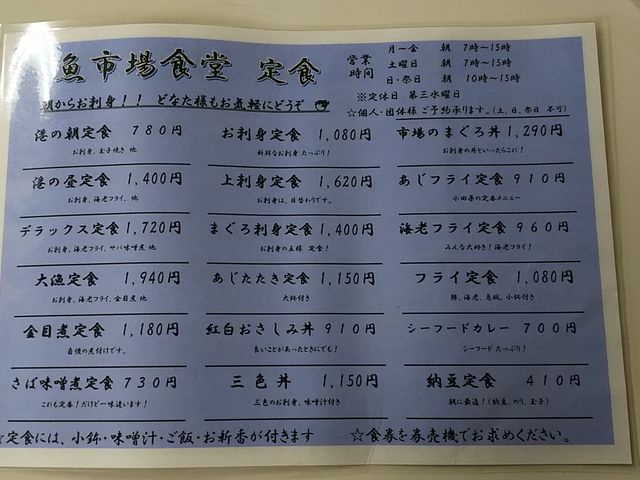 魚市場食堂 定食
営業時間
月～金 朝 7時～15時
土曜日 朝 7時～15時
日・祭日 朝 10時～15時
※定休日 第三水曜日
朝からお刺身！！ どなた様もお気軽にどうぞ
☆個人・団体様ご予約承ります。(土、日、祭日 不可)
港の朝定食 780円
お刺身、玉子焼き 他
お刺身定食 1,080円
新鮮なお刺身 たっぷり！
市場のまぐろ丼 1,290円
お刺身の丼といったらこれ！
港の昼定食 1,400円
お刺身、海老フライ、他
上刺身定食 1,620円
お刺身は、日替わりです。
あじフライ定食 910円
小田原の定番メニュー
デラックス定食 1,720円
お刺身、海老フライ、サバ味噌煮 他
まぐろ刺身定食 1,400円
お刺身の王様 定食！
海老フライ定食 960円
みんな大好き！海老フライ！
大漁定食 1,940円
お刺身、海老フライ、金目煮 他
あじたたき定食 1,150円
大鉢付き
フライ定食 1,080円
鯵、海老、烏賊、小鉢付き
金目煮定食 1,180円
自慢の煮付けです。
紅白おさしみ丼 910円
良いことがあったときにでも！
シーフードカレー 700円
シーフード たっぷり！
さば味噌煮定食 730円
これも定番！だけど一味違います！
三色丼 1,150円
三色のお刺身、味噌汁付き
納豆定食 410円
朝に最適！(納豆、のり、玉子)
☆定食には、小鉢・味噌汁・ご飯・お新香が付きます
☆食券を券売機でお求めください。